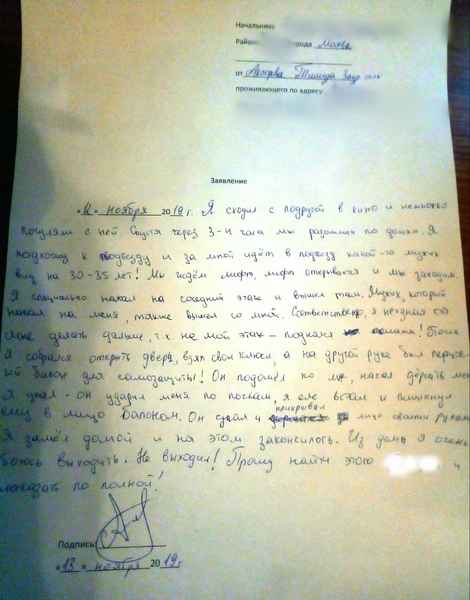 Начальнику
Района города Москва
от Аскерова Тимура Заур оглы
проживающего по адресу
Заявление
«12» ноября 2019 г. Я сходил с подругой в кино и немножко
погуляли с ней Спустя через 3-4 часа мы разошлись по домам. Я
подхожу к подъезду и за мной идёт в подъезд какой-то мужик
вид на 30-35 лет! Мы ждём лифт, лифт открывается и мы заходим.
Я специально нажал на соседний этаж и вышел там. Мужик, который
нажал на меня, также вышел со мной. Соответственно, я не знал что
мне делать дальше, т.к. не мой этаж - поднялся пешком! После
Я собрался открыть дверь, взял свои ключи, а на другой руке был перцов
ый балон для самозащиты! Он подошёл ко мне, начал дёргать меня
Я упал - он ударил меня по ногам, я еле встал и пшикнул
ему в лицо балоном. Он сдвал и прикрывал лицо своими руками
Я зашёл домой и на этом закончилось. Из дома я очень
боюсь выходить. Не выходил! Прошу найти этого и
наказать по полной!
Подпись:
«13» ноября 2019 г.